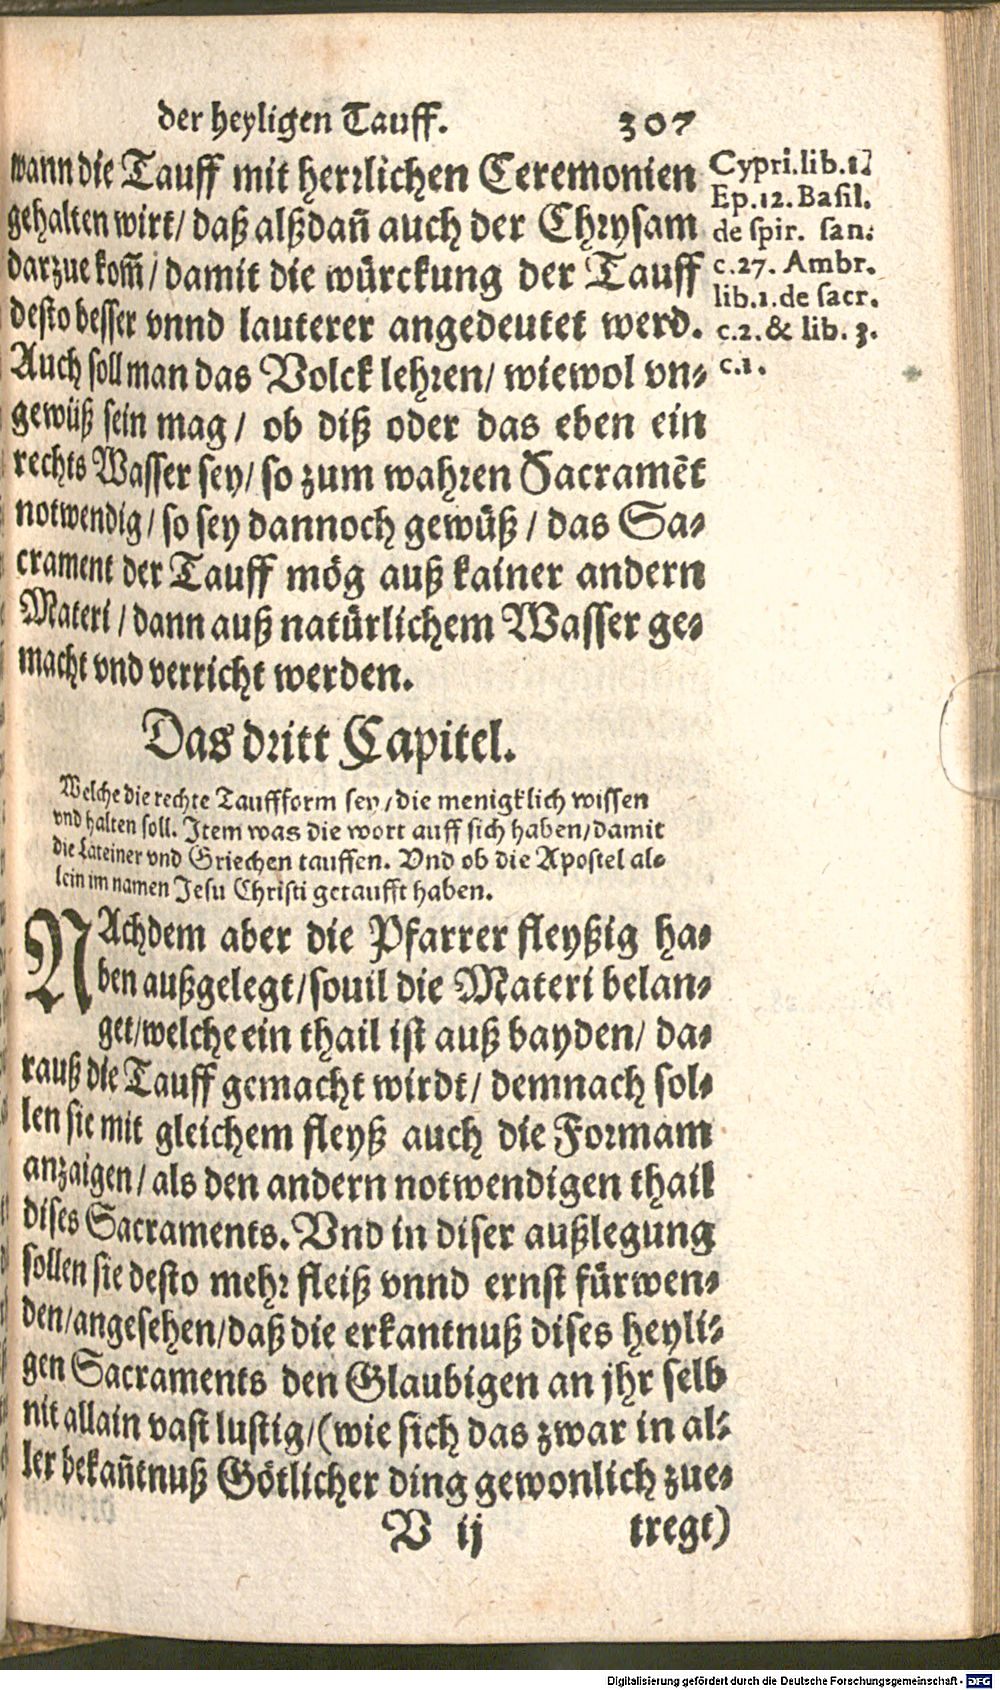 der heyligen Tauff. 307
wann die Tauff mit herrlichen Ceremonien
gehalten wirt/ daß alßdañ auch der Chrysam
darzue kom̃/ damit die würckung der Tauff
desto besser vnnd lauterer angedeutet werd.
Auch soll man das Volck lehren/ wiewol vn-
gewüß sein mag/ ob diß oder das eben ein
rechts Wasser sey/ so zum wahren Sacramẽt
notwendig/ so sey dannoch gewüß/ das Sa-
crament der Tauff mög auß kainer andern
Materi/ dann auß natürlichem Wasser ge-
macht vnd verricht werden.
Cypri.lib.1.
Ep.12. Basil.
de spir. san.
c.27. Ambr.
lib.1.de sacr.
c.2. & lib. 3.
c.1.
Das dritt Capitel.
Welche die rechte Tauffform sey/ die menigklich wissen
vnd halten soll. Item was die wort auff sich haben/ damit
die Lateiner vnd Griechen tauffen. Vnd ob die Apostel al-
lein im namen Jesu Christi getaufft haben.
NAchdem aber die Pfarrer fleyßig ha-
ben außgelegt/ souil die Materi belan-
get/ welche ein thail ist auß bayden/ da-
rauß die Tauff gemacht wirdt/ demnach sol-
len sie mit gleichem fleyß auch die Formam
anzaigen/ als den andern notwendigen thail
dises Sacraments. Vnd in diser außlegung
sollen sie desto mehr fleiß vnnd ernst fürwen-
den/ angesehen/ daß die erkantnuß dises heyli-
gen Sacraments den Glaubigen an jhr selb
nit allain vast lustig/ (wie sich das zwar in al-
ler bekañtnuß Götlicher ding gewonlich zue-
V ij tregt)
Digitalisierung gefördert durch die Deutsche Forschungsgemeinschaft - DFG